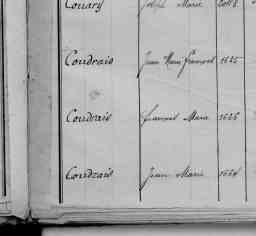 Couary Joseph Marie
Coudrais Jean Marie François 1625
Coudrais François Marie 1626
Coudrais Jean Marie